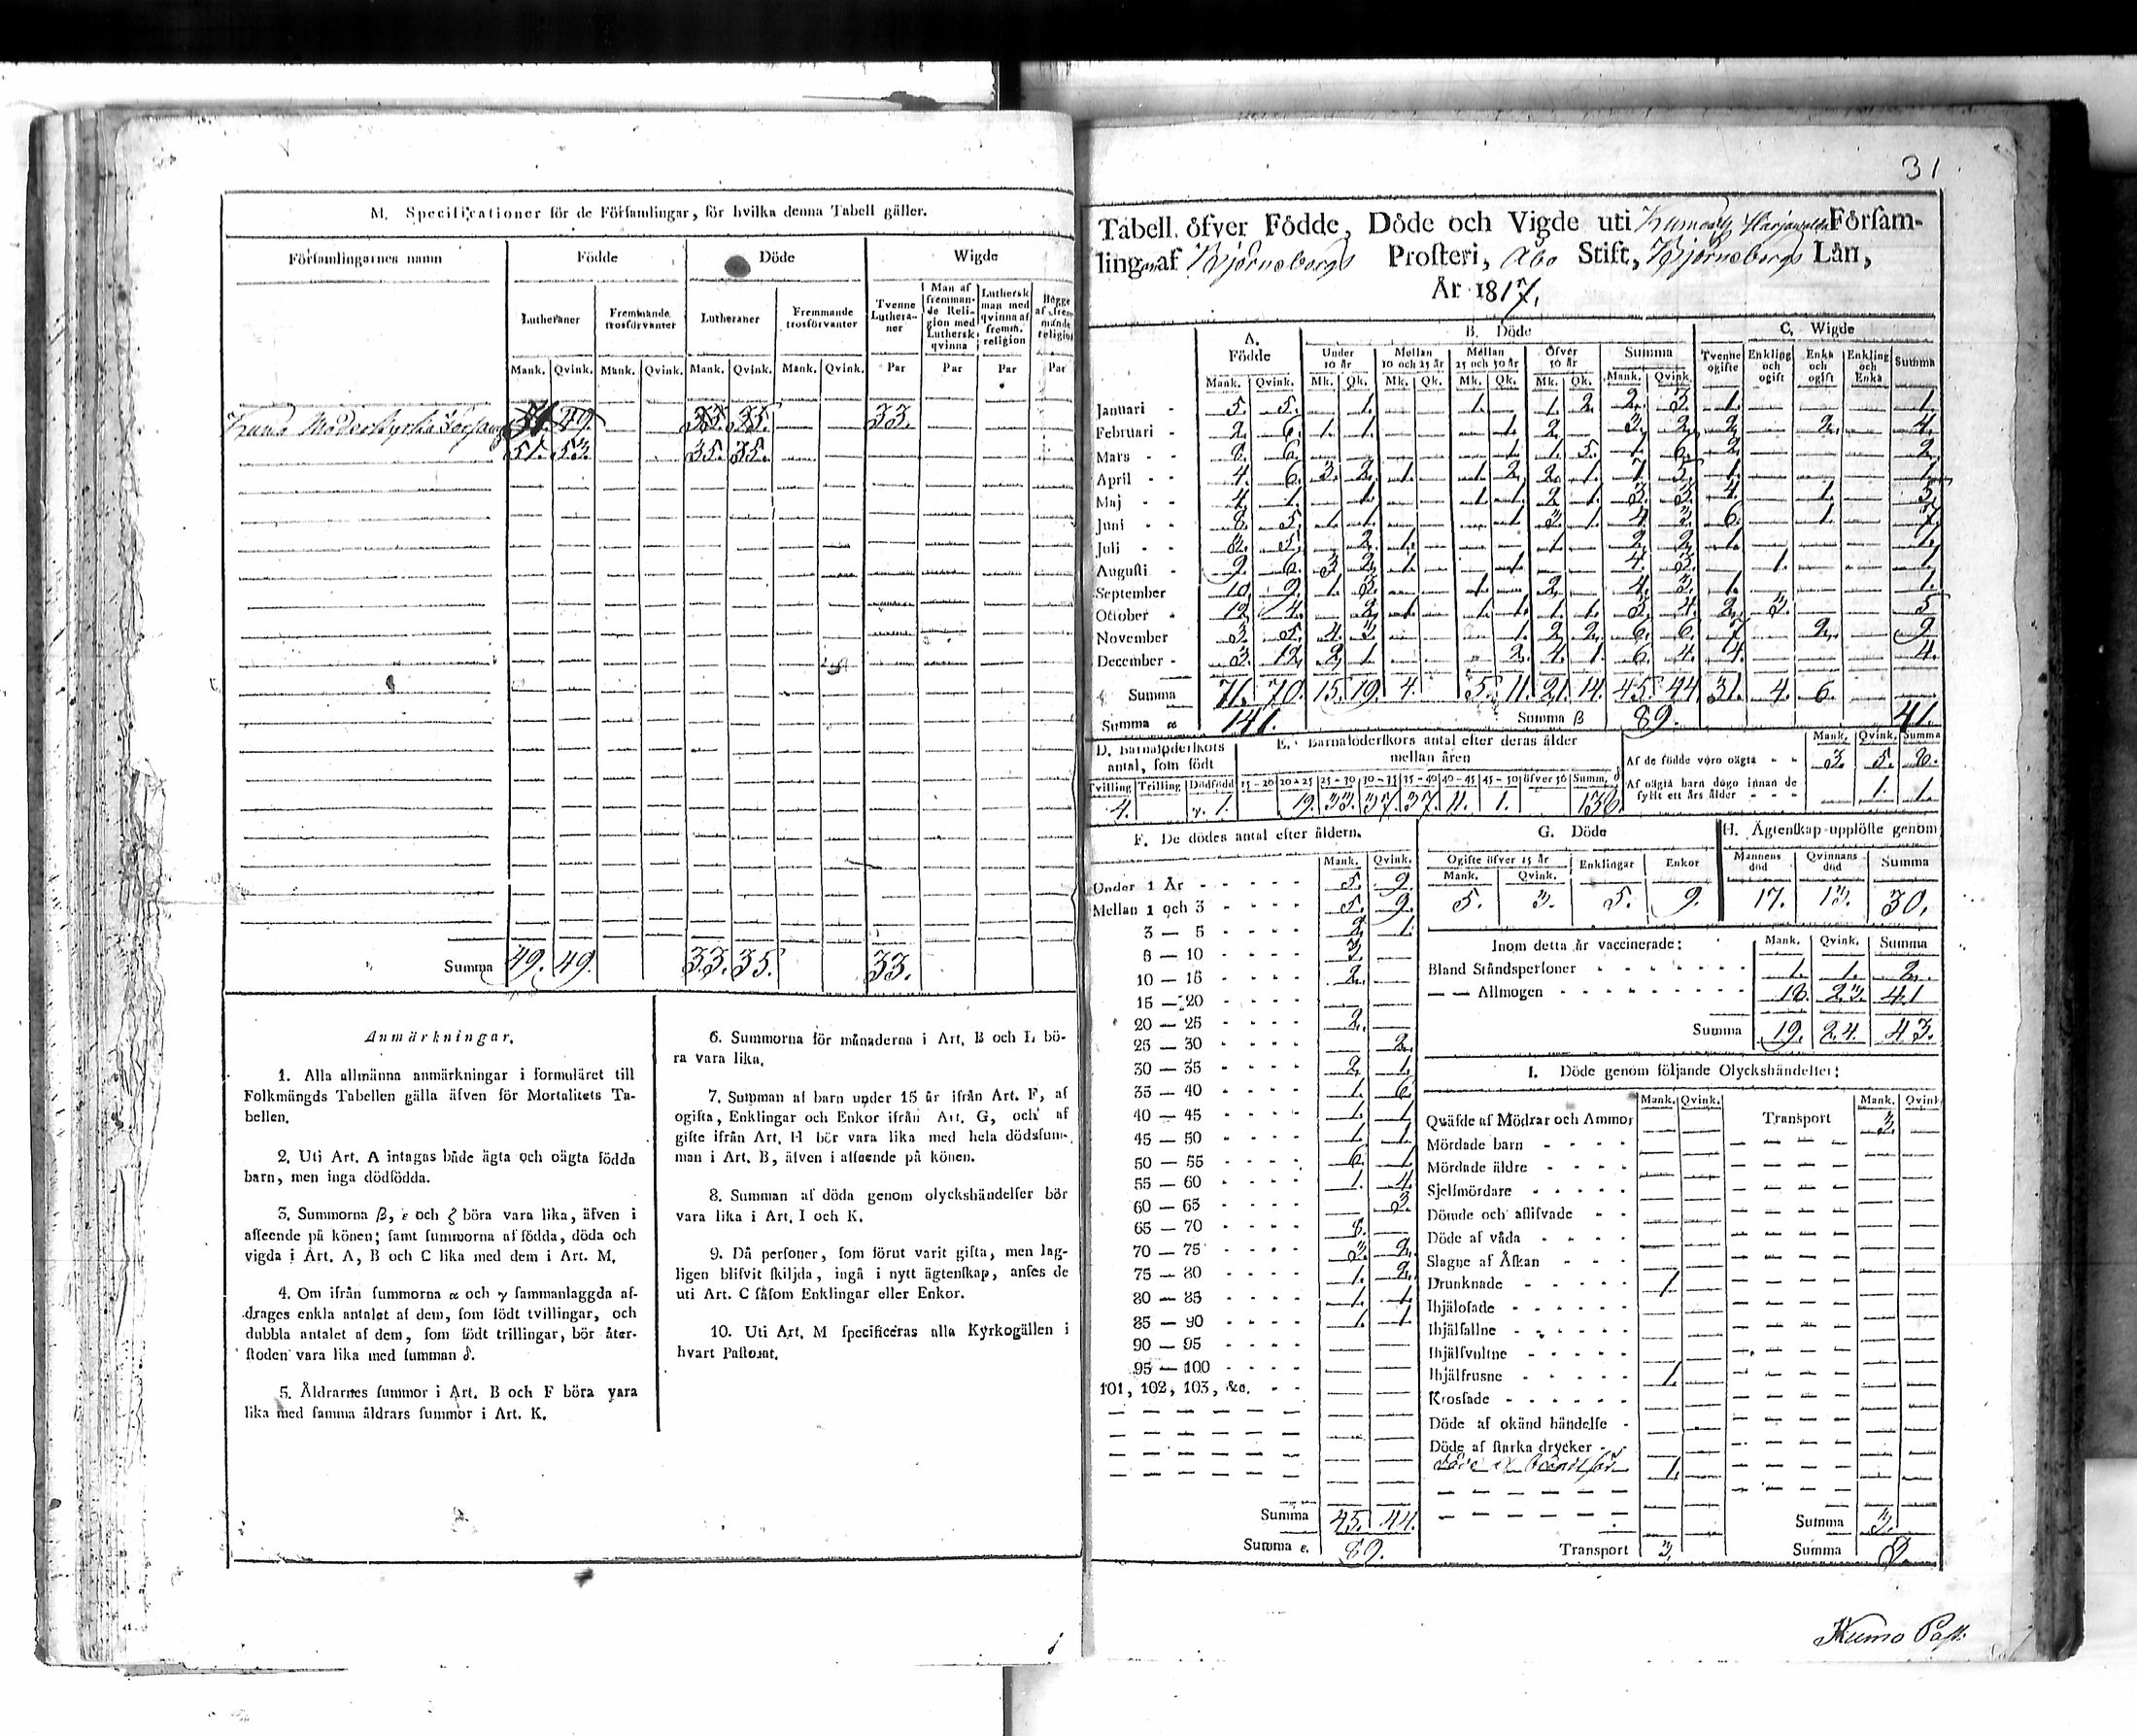 M. Specificationer för de Församlingar, för hvilka denna Tabell gäller.
Församlingarnes namn | Födde | Döde | Wigde
Lutheraner | Fremmande trosförvanter | Lutheraner | Fremmande trosförvanter | Tvenne Lutheraner | Man af fremmande Religion med Luthersk qvinna | Luthersk man med qvinna af fremm. religion | Bägge af fremmande religion
Mank. Qvink. Mank. Qvink. Mank. Qvink. Mank. Qvink. Par Par Par Par
Moderkyrko 49. 33. 35. 33.
51. 53. 35. 35.
Summa 49. 49. 33. 35. 33.
Anmärkningar.
1. Alla allmänna anmärkningar i formuläret till
Folkmängds Tabellen gälla äfven för Mortalitets Ta-
bellen.
2. Uti Art. A intagas både ägta och oägta födda
barn, men inga dödfödda.
3. Summorna β, ε och ζ böra vara lika, äfven i
afseende på könen; samt summorna af födda, döda och
vigda i Art. A, B och C lika med dem i Art. M.
4. Om ifrån summorna α och γ sammanlaggda af-
drages enkla antalet af dem, som födt tvillingar, och
dubbla antalet af dem, som födt trillingar, bör åter-
stoden vara lika med summan δ.
5. Åldrarnes summor i Art. B och F böra vara
lika med samma åldrars summor i Art. K.
6. Summorna för månaderna i Art. B och L bö-
ra vara lika.
7. Summan af barn under 15 år ifrån Art. F, af
ogifta, Enklingar och Enkor ifrån Art. G, och af
gifte ifrån Art. H bör vara lika med hela dödssum-
man i Art. B, äfven i afseende på könen.
8. Summan af döda genom olyckshändelser bör
vara lika i Art. I och K.
9. Då personer, som förut varit gifta, men lag-
ligen blifvit skiljda, ingå i nytt ägtenskap, anses de
uti Art. C såsom Enklingar eller Enkor.
10. Uti Art. M specificeras alla Kyrkogällen i
hvart Pastorat.
31
Tabell öfver Födde, Döde och Vigde uti Kumo Harjavalda Församling
af Björneborgs Prosteri, Åbo Stift, Björneborgs Län,
År 1817.
A. Födde | B. Döde | C. Wigde
Under 10 år | Mellan 10 och 25 år | Mellan 25 och 50 år | Öfver 50 år | Summa | Tvenne ogifte | Enkling och ogift | Enka och ogift | Enkling och Enka | Summa
Mank. Qvink. Mk. Qk. Mk. Qk. Mk. Qk. Mk. Qk. Mank. Qvink.
Januari 5. 5. 1. 1. 1. 2. 2. 3. 1. 1.
Februari 2. 6. 1. 1. 1. 2. 3. 2. 2. 2. 4.
Mars 8. 6. 1. 1. 5. 1. 6. 2. 2.
April 4. 6. 3. 2. 1. 1. 2. 2. 1. 7. 5. 1. 1.
Maj 4. 1. 1. 1. 1. 2. 1. 3. 3. 4. 1. 5.
Juni 8. 5. 1. 1. 1. 3. 1. 4. 3. 6. 1. 7.
Juli 3. 5. 2. 1. 1. 2. 2. 1. 1.
Augusti 9. 6. 3. 2. 1. 1. 4. 3. 1. 1.
September 10. 9. 1. 3. 1. 2. 4. 3. 1. 1.
October 12. 4. 2. 1. 1. 1. 1. 1. 3. 4. 2. 3. 5
November 3. 5. 4. 3 1. 2. 2. 6. 6. 7. 2. 9
December 3. 12. 2. 1. 2. 4. 1. 6. 4. 4. 4.
Summa 71. 70. 15. 19. 4. 5. 11. 21. 14. 45. 44. 31. 4. 6.
Summa α 141. Summa β 89. 41.
D. Barnaföderskors antal, som födt
Tvilling Trilling Dödfödd
4. γ. 1.
E. Barnaföderskors antal efter deras ålder mellan åren
15-20 20-25 25-30 30-35 35-40 40-45 45-50 öfver 50 Summ. δ
19. 33. 37. 37. 11. 1. 138
Mank. Qvink. Summa
Af de födde voro oägta 3. 5. 8.
Af oägta barn dogo innan de fyllt ett års ålder 1. 1.
F. De dödes antal efter åldern.
Mank. Qvink.
Under 1 År 5. 9.
Mellan 1 och 3 5. 9.
3 — 5 2. 1.
5 — 10 3.
10 — 15 2.
15 — 20
20 — 25 2.
25 — 30 2.
30 — 35 2. 1.
35 — 40 1. 6.
40 — 45 1. 1
45 — 50 1. 1.
50 — 55 6. 1
55 — 60 1. 4.
60 — 65 3.
65 — 70 8.
70 — 75 3. 2.
75 — 80 1. 2.
80 — 85 1. 1.
85 — 90 1. 1
90 — 95
95 — 100
101, 102, 103, &c.
Summa 45. 44.
Summa ε. 89.
G. Döde
Ogifte öfver 15 år Enklingar Enkor
Mank. Qvink.
5. 3. 5. 9.
H. Ägtenskap upplöste genom
Mannens död Qvinnans död Summa
17. 13. 30.
Inom detta år vaccinerade: Mank. Qvink. Summa
Bland Ståndspersoner 1. 1. 2.
— — Allmogen 18. 23. 41
Summa 19. 24. 43.
I. Döde genom följande Olyckshändelser:
Mank. Qvink. Mank. Qvink
Quäfde af Mödrar och Ammor Transport 3.
Mördade barn
Mördade äldre
Sjelfmördare
Dömde och aflifvade
Döde af våda
Slagne af Åskan
Drunknade 1.
Ihjälofade
Ihjälfallne
Ihjälfvultne
Ihjälfrusne 1.
Krossade
Döde af okänd händelse
Döde af starka drycker
Döde 1.
Summa 3.
Transport 3. Summa 3.
Kumo Past.